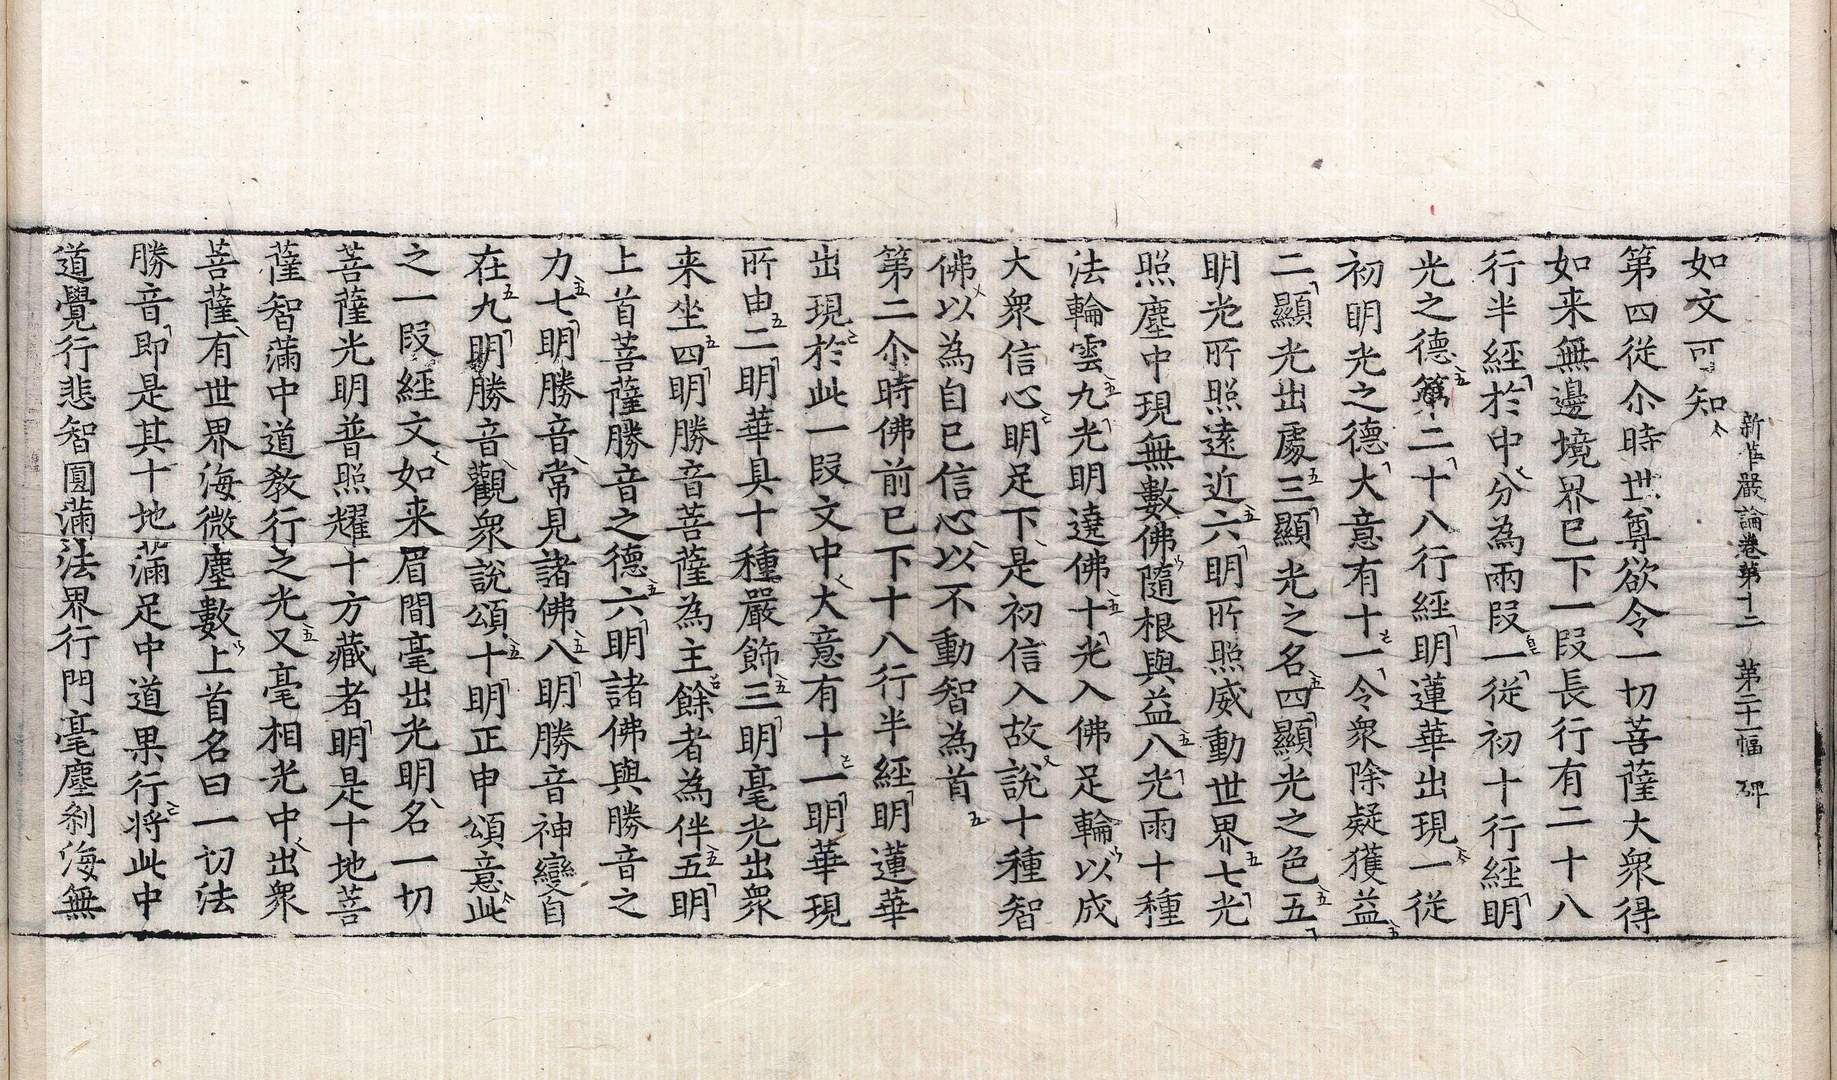 新華嚴論卷第十二 第二十一幅 碑
如文可知
第四從尒時世尊欲令一切菩薩大衆得
如来無邊境界已下一段長行有二十八
行半經於中分為兩段一從初十行經明
光之德第二十八行經明蓮華出現一從
初明光之德大意有十一令衆除疑獲益
二顯光出處三顯光之名四顯光之色五
明光所照遠近六明所照威動世界七光
照塵中現無數佛隨根與益八光雨十種
法輪雲九光明遶佛十光入佛足輪以成
大衆信心明足下是初信入故說十種智
佛以為自已信心以不動智為首
第二尒時佛前已下十八行半經明蓮華
出現於此一段文中大意有十一明華現
所由二明華具十種嚴飾三明毫光出衆
来坐四明勝音菩薩為主餘者為伴五明
上首菩薩勝音之德六明諸佛與勝音之
力七明勝音常見諸佛八明勝音神變自
在九明勝音觀衆說頌十明正申頌意此
之一段經文如来眉間毫出光明名一切
菩薩光明普照耀十方藏者明是十地菩
薩智滿中道教行之光又毫相光中出衆
菩薩有世界海微塵數上首名曰一切法
勝音即是其十地滿足中道果行将此中
道覺行悲智圓滿法界行門毫塵刹海無